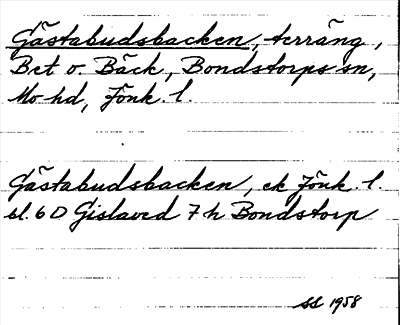 Gästabudsbacken, terräng,
Bet o. Bäck, Bondstorps sn,
Mo hd, Jönk. l.
Gästabudsbacken, ek Jönk. l.
bl. 6 D Gislaved 7 h Bondstorp
SS 1958